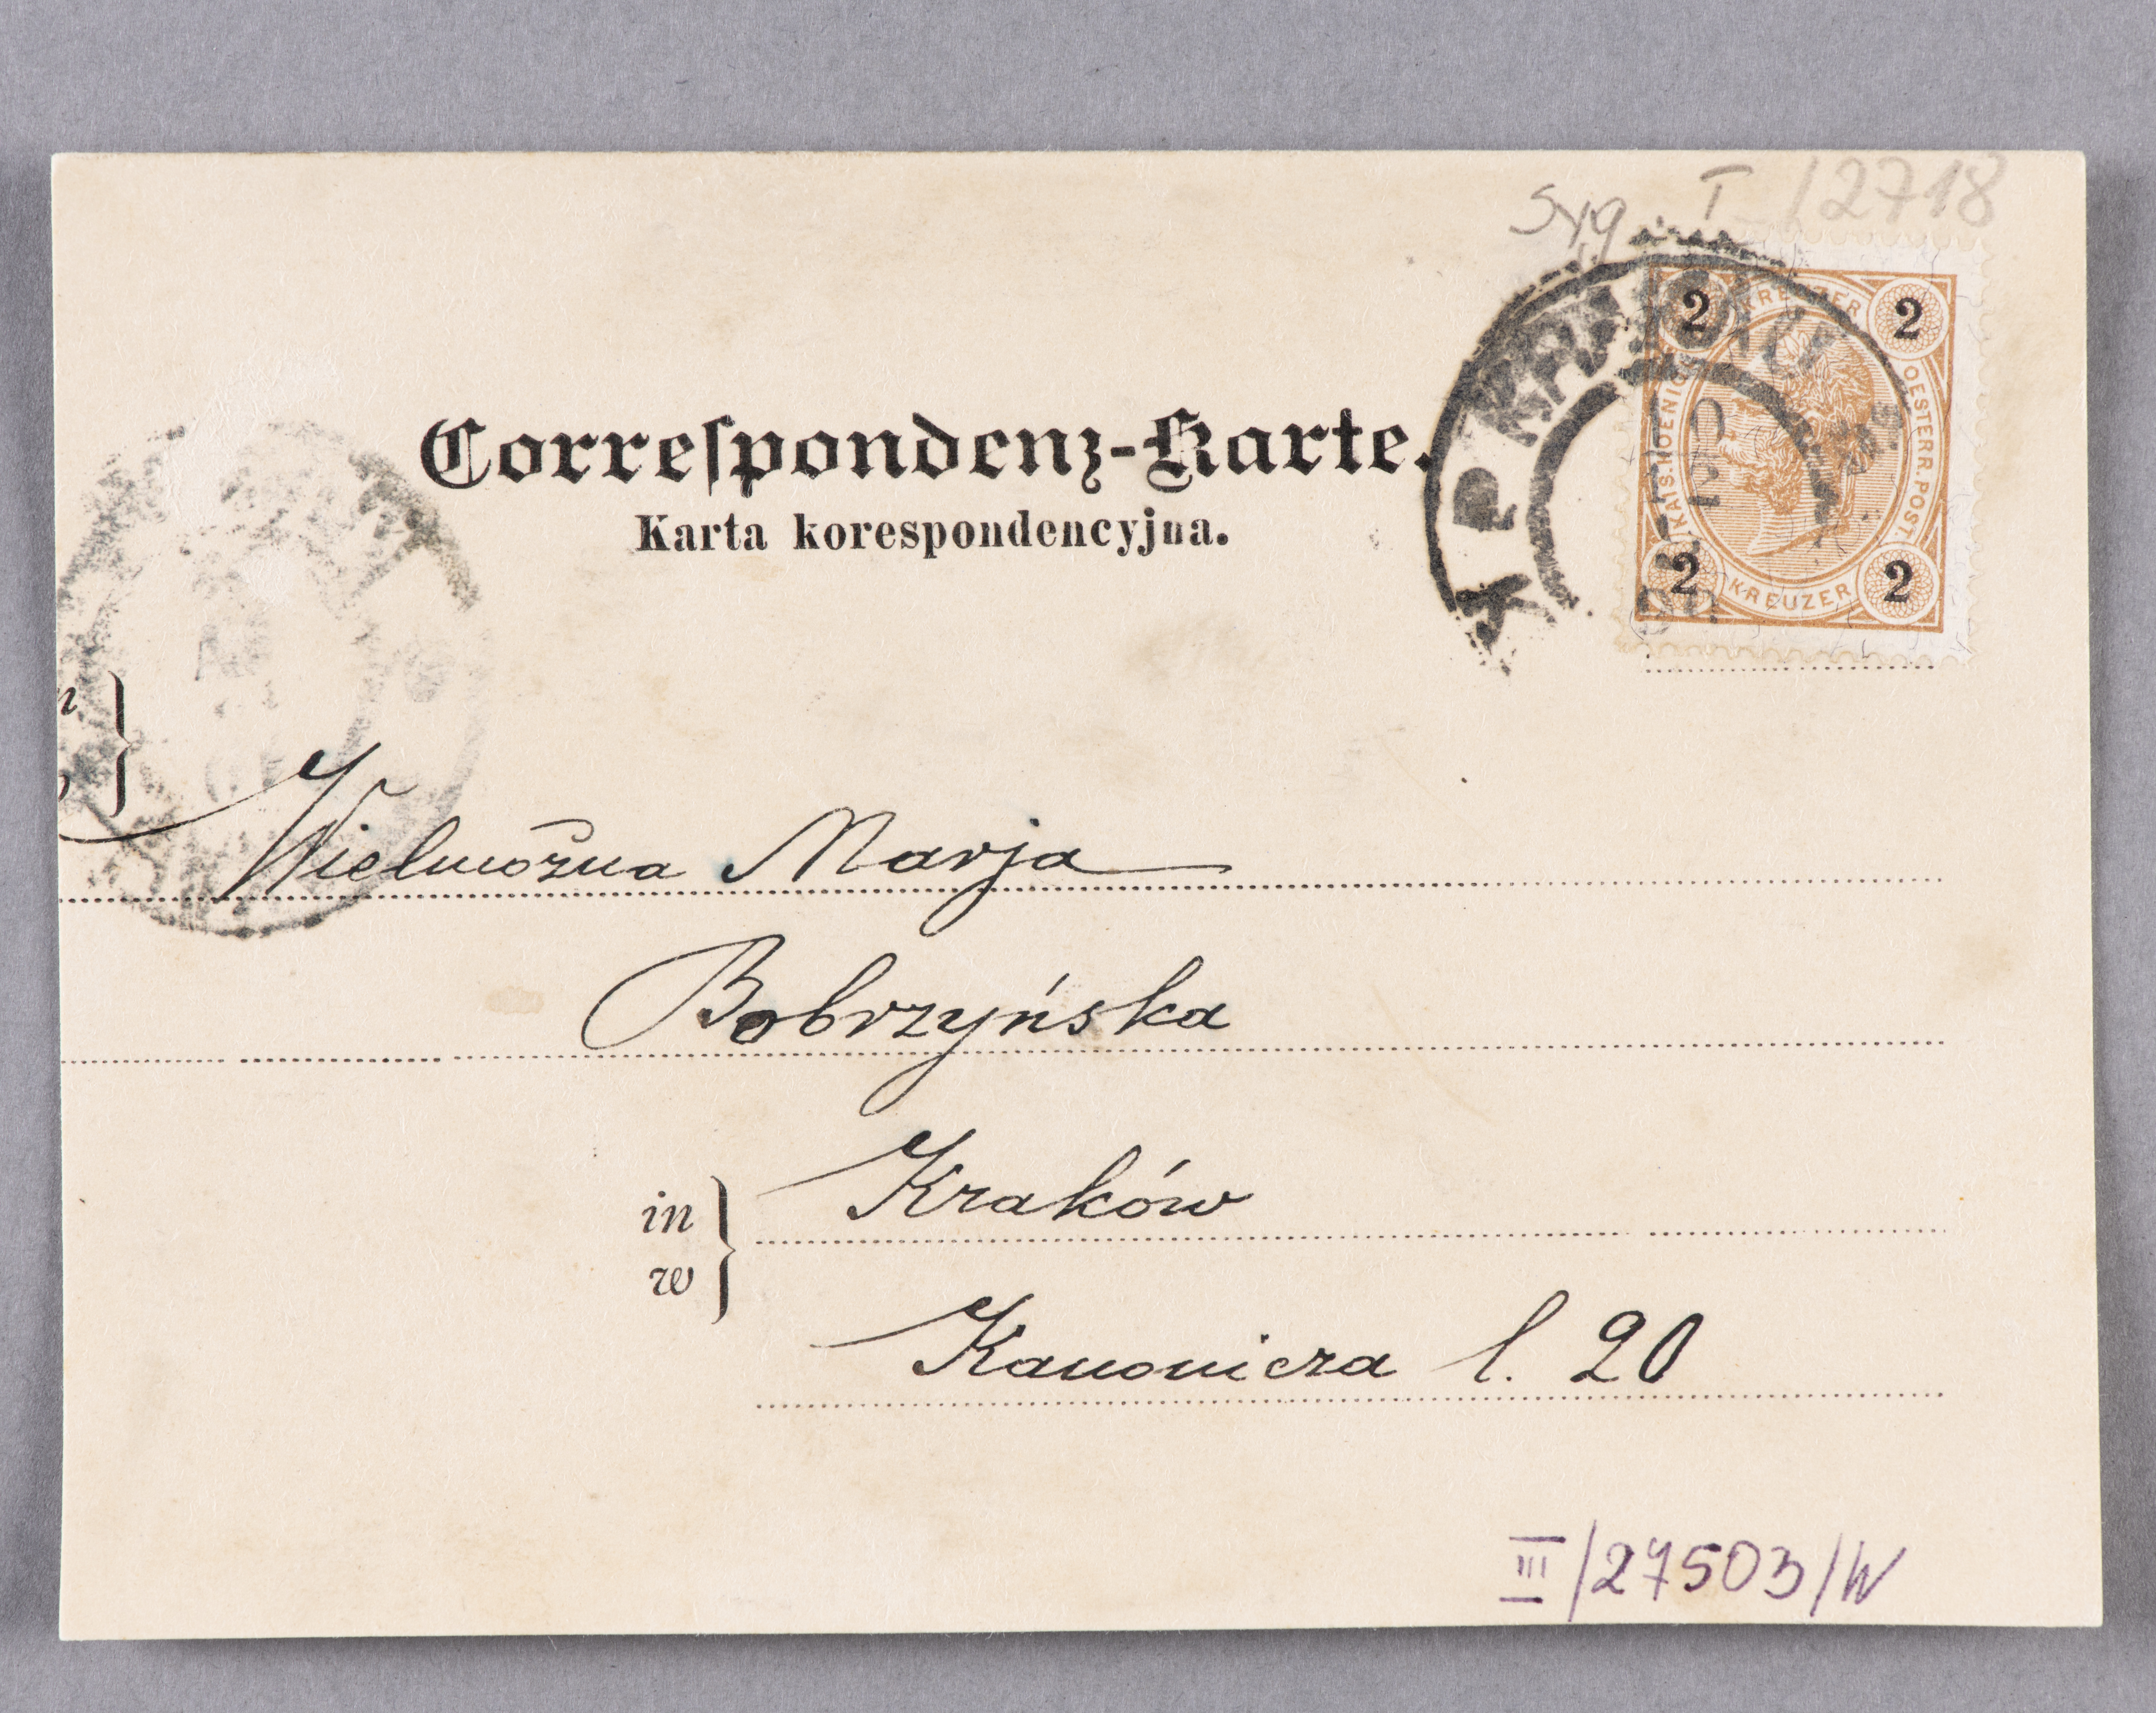 Syg T /2718
2 KREUZER 2
KAIS. KOENIGL. OESTERR. POST.
2 KREUZER 2
K P KRAKAU
Correſpondenz-Karte.
Karta korespondencyjna.
Wielmożna Marja
Bobrzyńska
in
w
Kraków
Kanonicza l. 20
III/27503/W